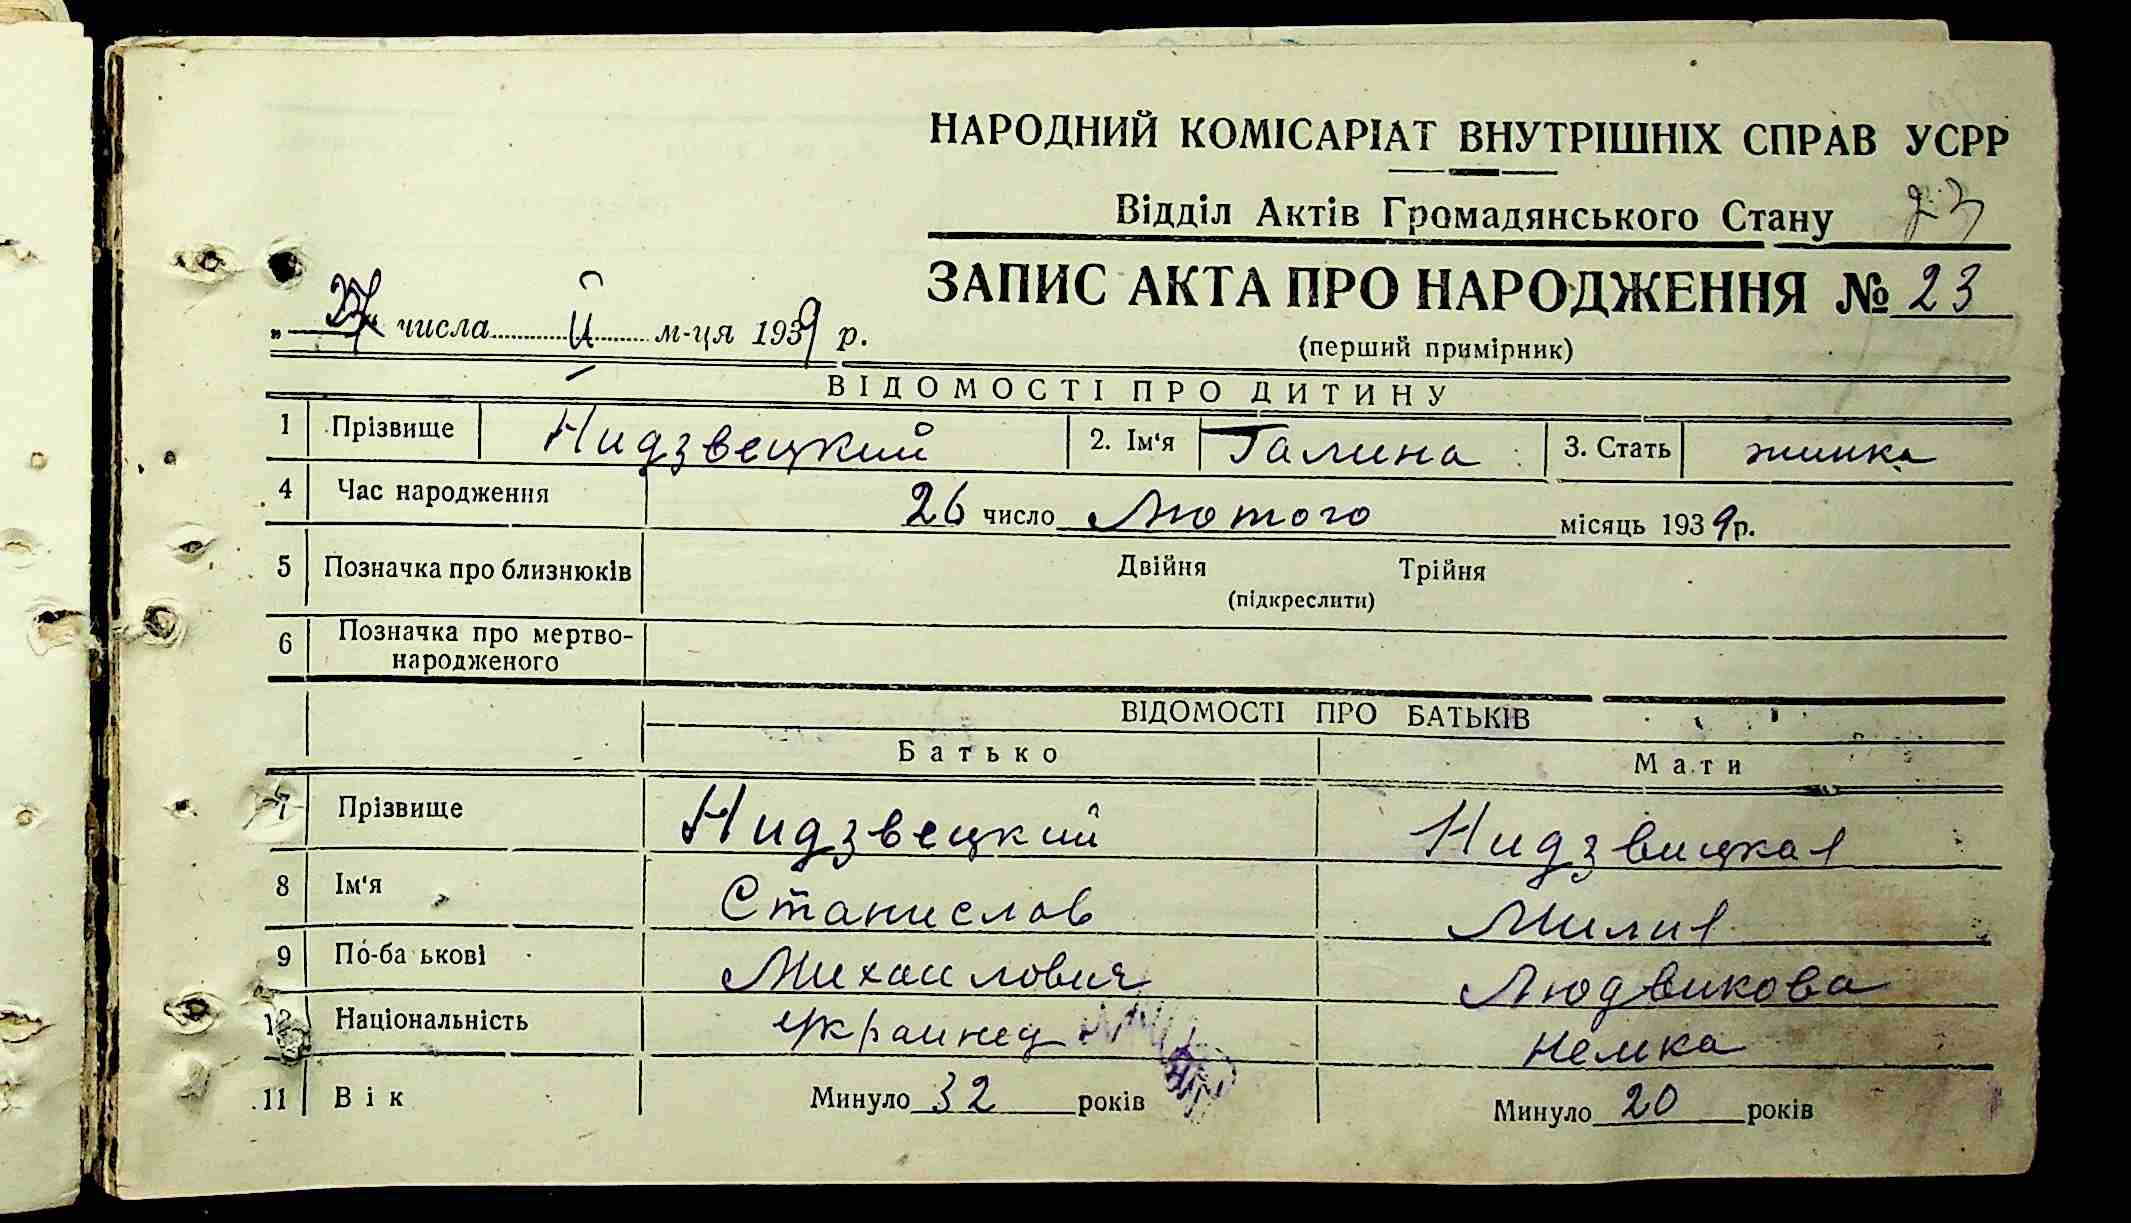 НАРОДНИЙ КОМІСАРІАТ ВНУТРІШНІХ СПРАВ УСРР
Відділ Актів Громадянського Стану 23
ЗАПИС АКТА ПРО НАРОДЖЕННЯ № 23
(перший примірник)
„27“ числа ІІ м-ця 1939 р.
ВІДОМОСТІ ПРО ДИТИНУ
1 Прізвище Нидзвецкий 2. Ім'я Галина 3. Стать жинка
4 Час народження 26 число Лютого місяць 1939 р.
5 Позначка про близнюків Двійня Трійня
(підкреслити)
6 Позначка про мертво-
народженого
ВІДОМОСТІ ПРО БАТЬКІВ
Батько Мати
7 Прізвище Нидзвецкий Нидзвицкая
8 Ім'я Станислов Милия
9 По-ба ькові Михаилович Людвикова
10 Національність украинец немка
11 Вік Минуло 32 років Минуло 20 років